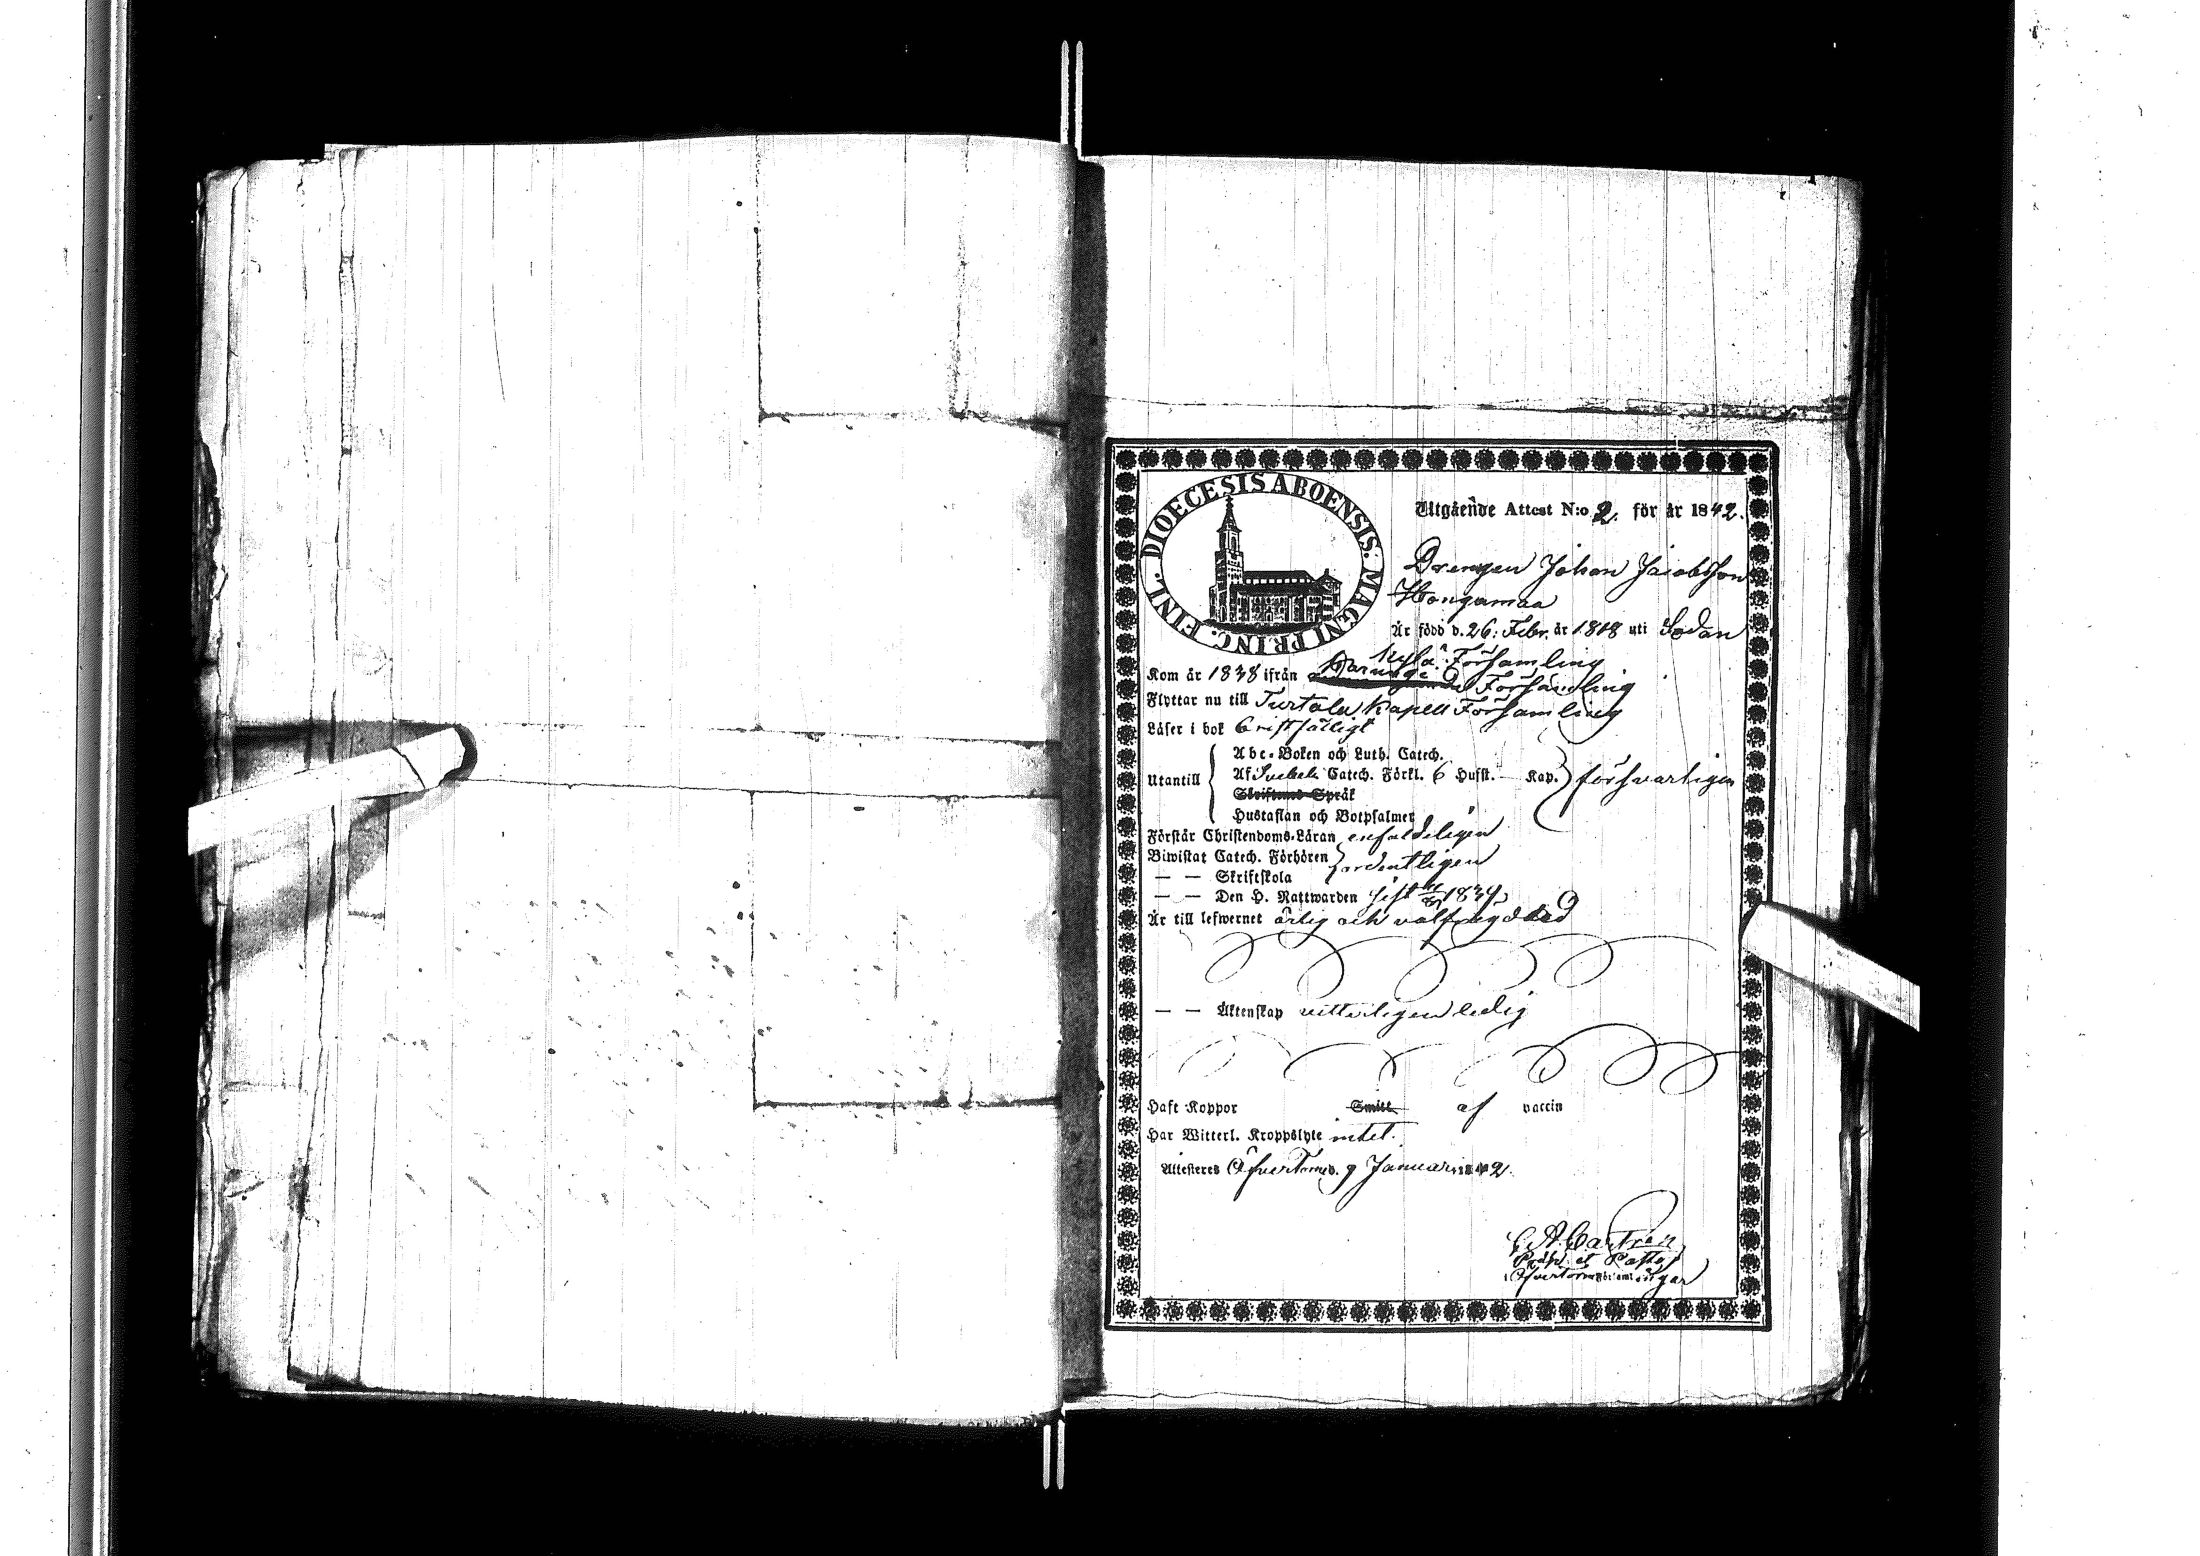 DIOECESIS ABOENSIS. MAGNI PRINC. FINL.
Utgående Attest N:o 2. för år 1842.
Drengen Johan Jacobsson
Hongamaa
Är född d. 26: Febr. år 1818 uti Sodan
kylä Församling
Kom år 1838 ifrån Församling
Flyttar nu till Turtola Kapell Församling
Läser i bok bristfälligt
Abc-Boken och Luth. Catech.
Utantill Af Svebeli Catech. Förkl. 6 Hufst. — Kap. försvarligen
Skriftenes Språk
Hustaflan och Botpsalmer
Förstår Christendoms-Läran enfaldeligen
Biwistat Catech. Förhören ordentligen
— — Skriftskola
— — Den H. Nattwarden sist 1839
Är till lefwernet ärlig och välfrejdad
— — Äktenskap vitterligen ledig
Haft Koppor Smitt af vaccin
Har Witterl. Kroppslyte intet.
Attesteras Öfver Torneå. 9 Januari 1842.
C A Castren
Probst et Pastor
i Öfvertorneå Församlingar